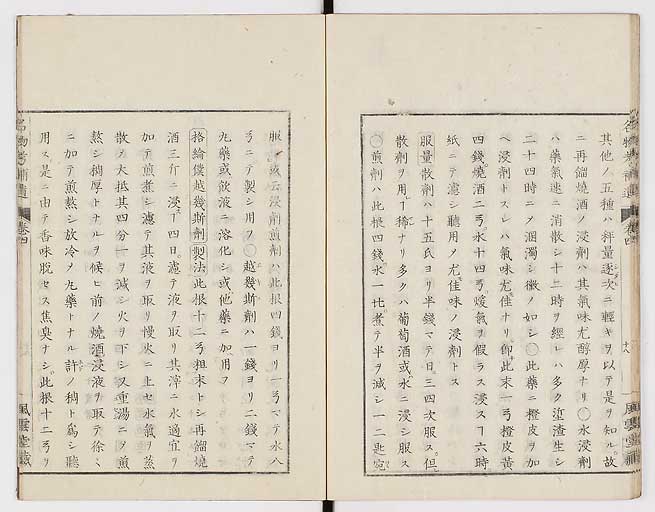 其他ノ五種ハ秤量逐次ニ輕キヲ以テ是ヲ知ル故
ニ再餾燒酒ノ浸劑ハ其氣味尤醇厚ナリ〇水浸劑
ハ藥氣速ニ消散シ十二時ヲ經レハ多ク渣生シ
二十四時ニノ溷濁シ黴ノ如シ〇此藥ニ橙皮ヲ加
ヘ浸劑トスレハ氣味尤佳ナリ卽此末一弓橙皮黃
四錢燒酒二弓水十四弓煖氣ヲ假ラス浸スヿ六時
紙ニテ濾シ聽用ノ尤佳味ノ浸劑トス
服量散劑ハ十五氏ヨリ半錢マテ日三四次服ス但
散劑ヲ用ヿ稀ナリ多クハ葡萄酒或水ニ浸シ服ス
〇煎劑ハ此根四錢水一匕煮テ半ヲ減シ一二匙宛
服或云浸劑煎劑ハ此根四錢ヨリ一弓マテ水八
弓ニテ製シ用フ〇越幾斯劑ハ一錢ヨリ二錢マテ
丸藥或飮液ニ溶化シ或他藥ニ加用フ
格綸僕越幾斯劑製法此根十二弓粗末トシ再餾燒
酒三斤ニ浸ヿ四日濾テ液ヲ取リ其滓ニ水適宜ヲ
加テ煎煮シ濾テ其液ヲ取リ慢火ニ上セ水氣ヲ蒸
散ヲ大抵其四分一ヲ減シ火ヲ下シ又重湯ニノ煎
熬シ稠厚トナルヲ候ヒ前ノ燒酒浸液ヲ取テ徐々
ニ加テ煎熬シ放冷ノ丸藥トナル許ノ稠ト爲シ聽
用ス是ニ由テ香味脫セス焦臭ナシ此根十二弓ヲ
名物考補遺
卷四
風雲堂藏